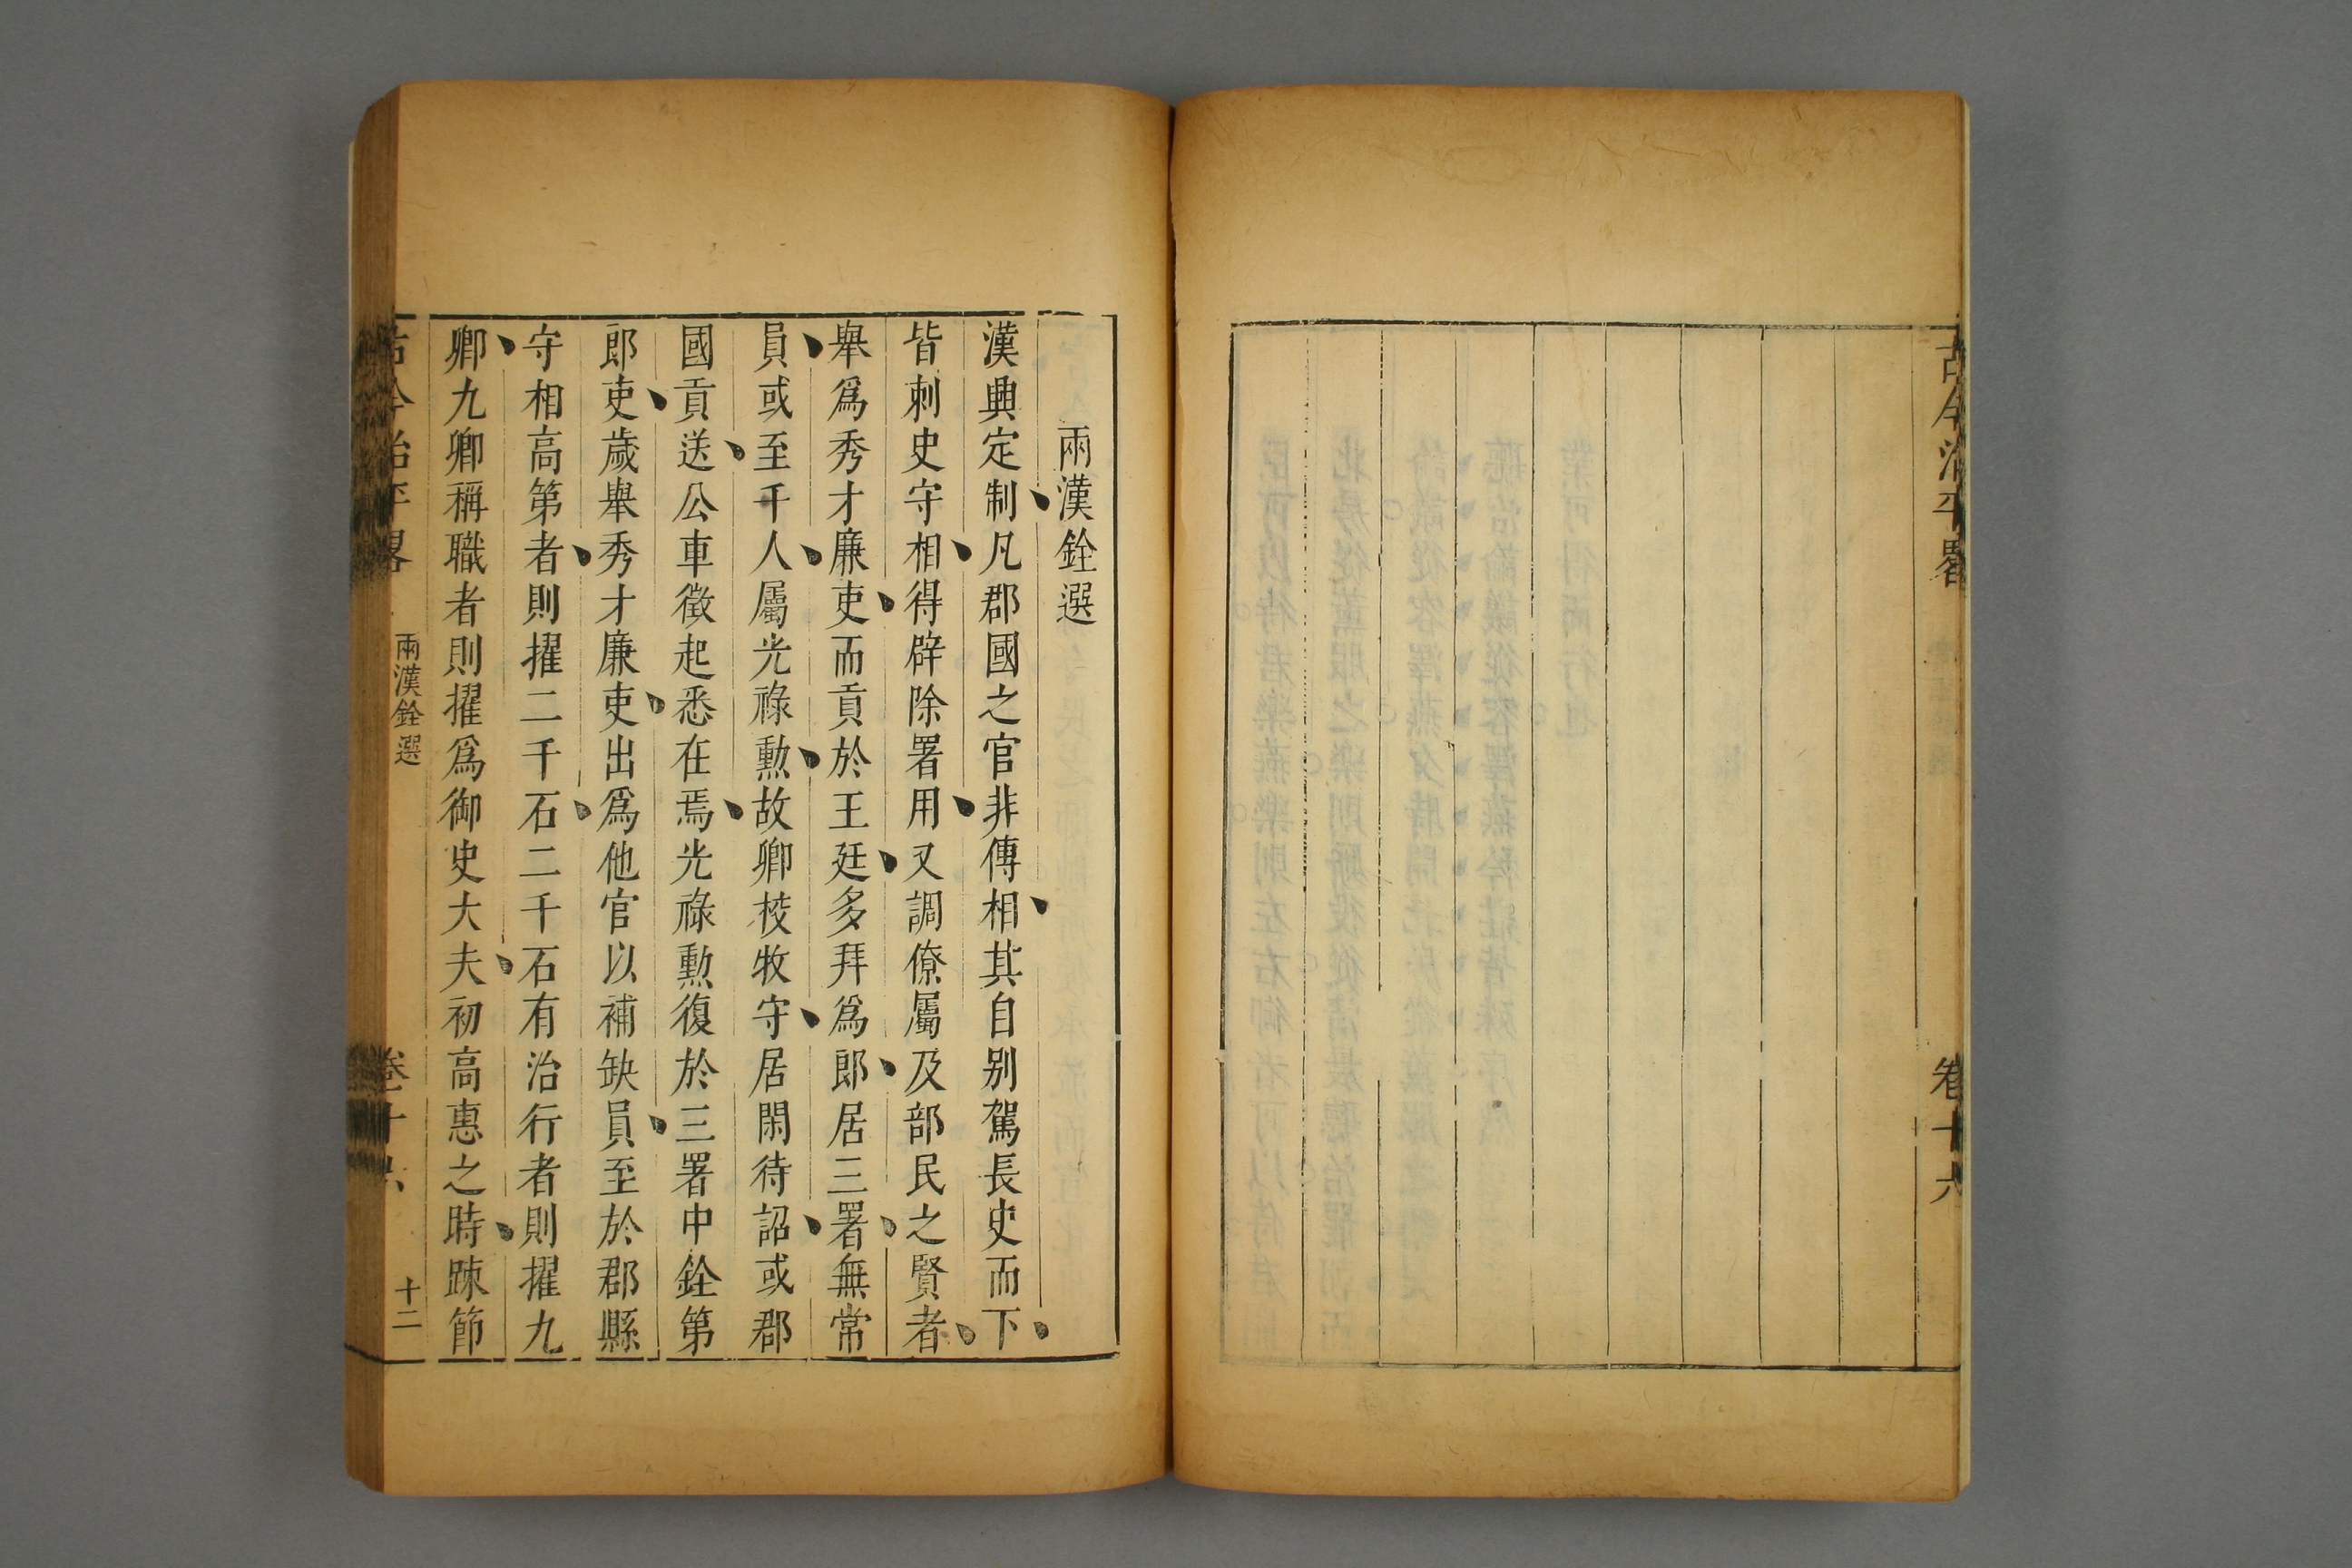 古今治平畧
卷十六
兩漢銓選
漢興定制凡郡國之官非傳相其自別駕長史而下
皆刺史守相得辟除署用又調僚屬及部民之賢者
舉爲秀才廉吏而貢於王廷多拜爲郎居三署無常
員或至千人屬光祿勲故卿校牧守居閑待詔或郡
國貢送公車徵起悉在焉光祿勲復於三署中銓第
郎吏歲舉秀才廉吏出爲他官以補缺員至於郡縣
守相高第者則擢二千石二千石有治行者則擢九
卿九卿稱職者則擢爲御史大夫初高惠之時踈節
古今治平畧
兩漢銓選
卷十六
十二